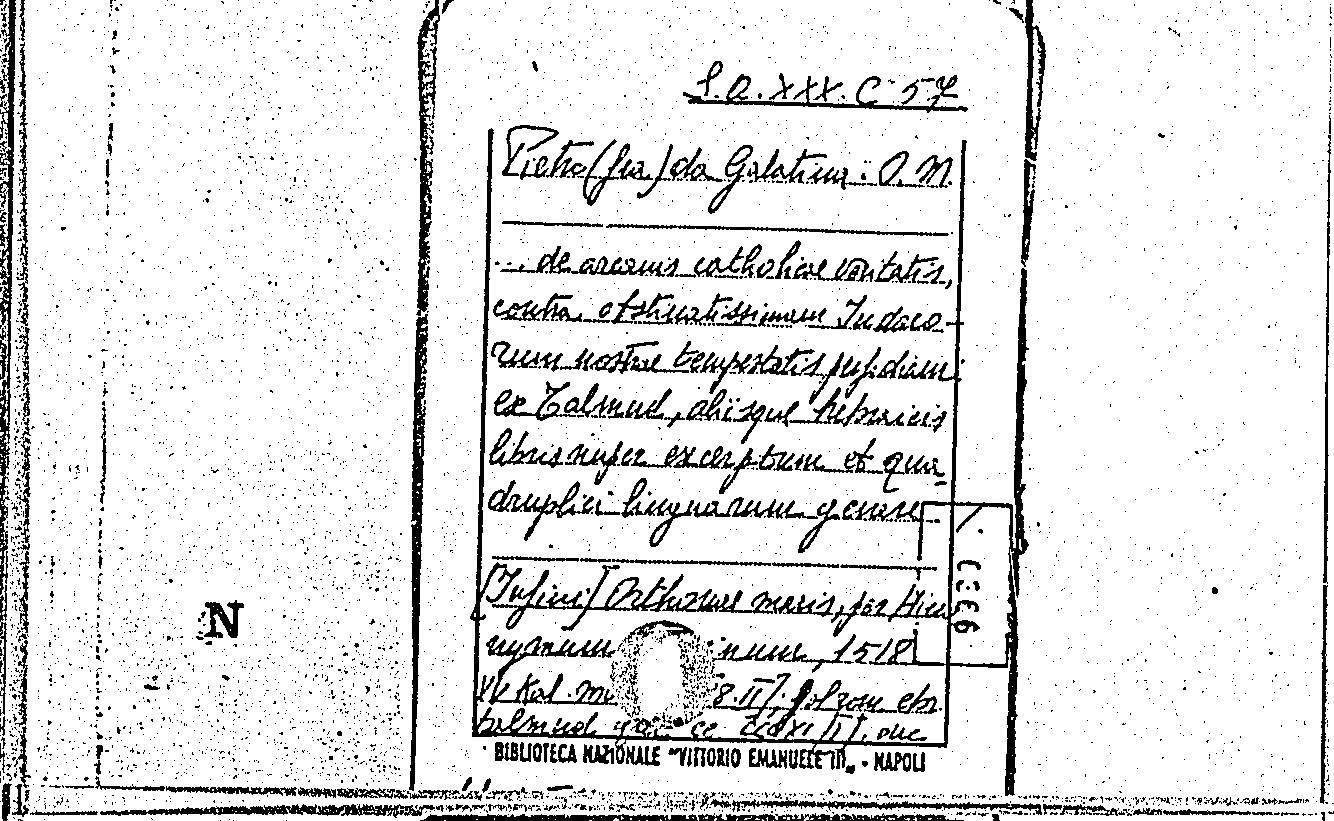 S.Q.XXX.C 57
Pietro (fra) da Galatina. O.M.
... de arcanis catholicae veritatis,
contra obstinatissimam Judaeo-
rum nostrae tempestatis perfidiam:
ex Talmud, aliisque hebraicis
libris nuper excerptum et qua-
druplici linguarum genere...
Orthonae maris, per Hiero
nymum 1518
N
XV Kal. 8.II]. fol rom ebr
talmud
BIBLIOTECA NAZIONALE "VITTORIO EMANUELE III„ - NAPOLI